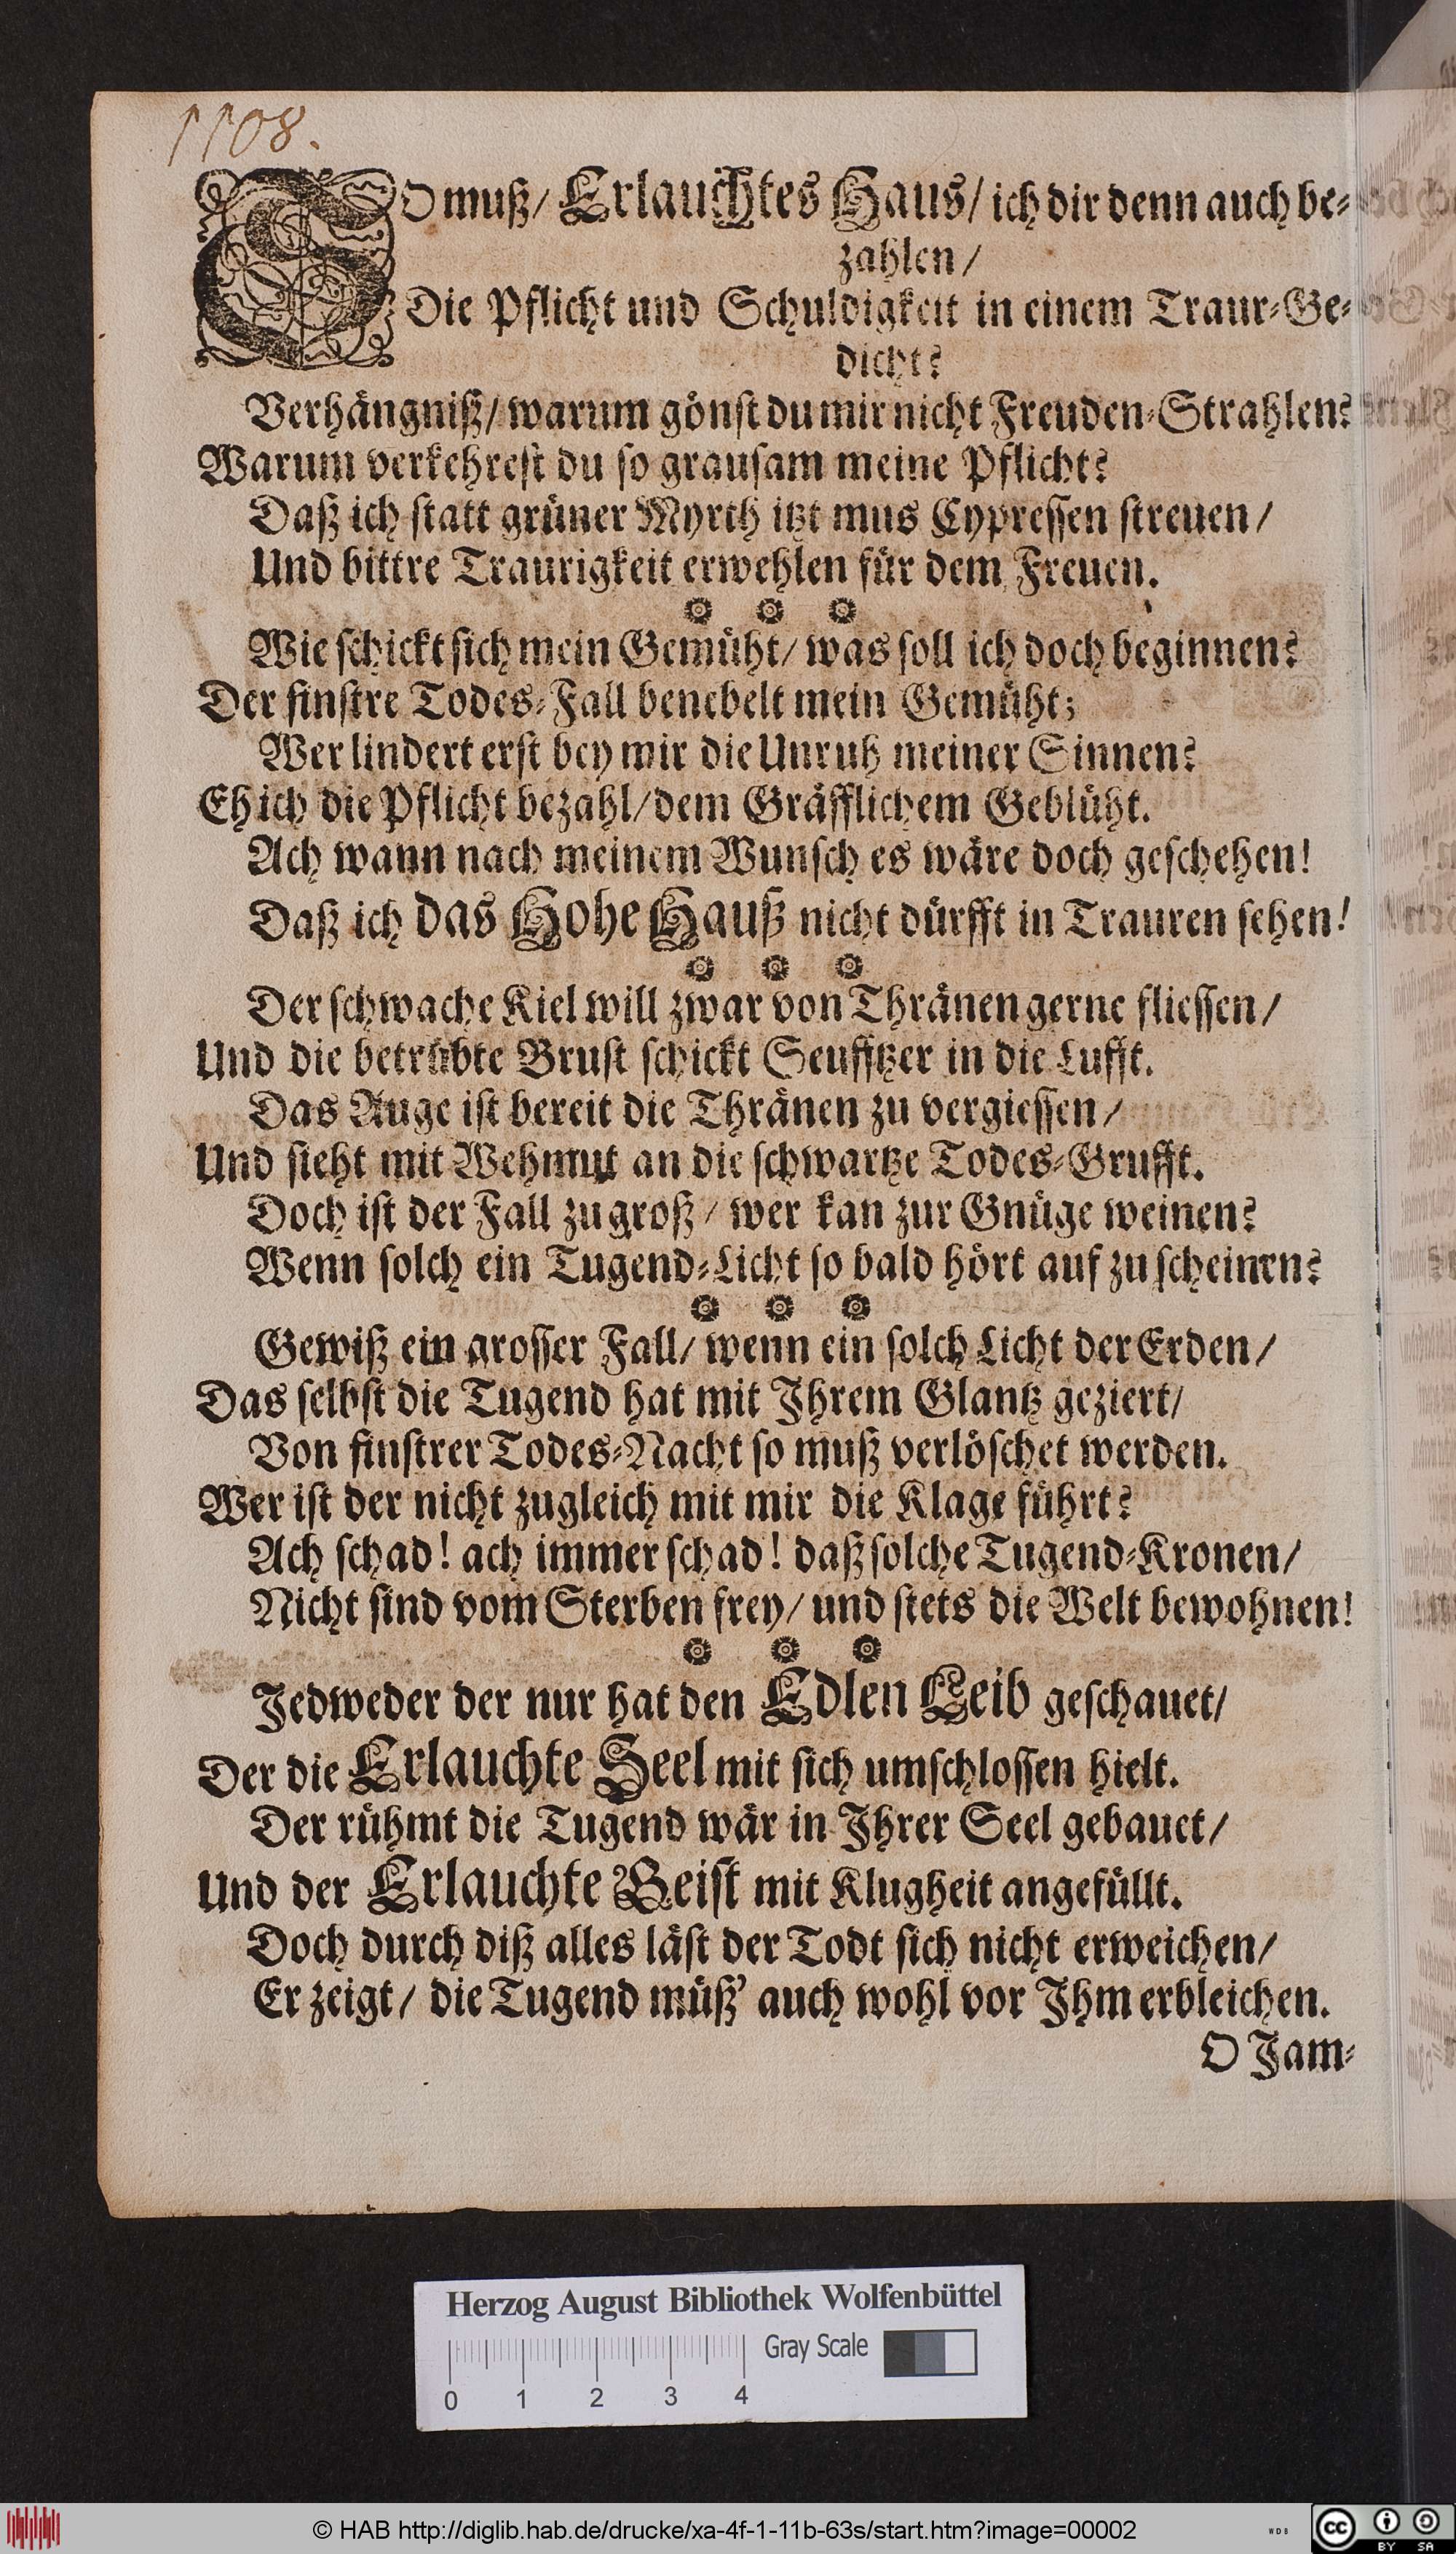 1108.
SO muß/ Erlauchtes Haus/ ich dir denn auch be-
zahlen/
Die Pflicht und Schuldigkeit in einem Traur-Ge-
dicht?
Verhängniß/ warum gönst du mir nicht Freuden-Strahlen?
Warum verkehrest du so grausam meine Pflicht?
Daß ich statt grüner Myrth itzt mus Cypressen streuen/
Und bittre Traurigkeit erwehlen für dem Freuen.
Wie schickt sich mein Gemüht/ was soll ich doch beginnen?
Der finstre Todes-Fall benebelt mein Gemüht;
Wer lindert erst bey mir die Unruh meiner Sinnen?
Eh ich die Pflicht bezahl/ dem Gräfflichem Geblüht.
Ach wann nach meinem Wunsch es wäre doch geschehen!
Daß ich das Hohe Hauß nicht dürfft in Trauren sehen!
Der schwache Kiel will zwar von Thränen gerne fliessen/
Und die betrübte Brust schickt Seufftzer in die Lufft.
Das Auge ist bereit die Thränen zu vergiessen/
Und sieht mit Wehmut an die schwartze Todes-Grufft.
Doch ist der Fall zu groß/ wer kan zur Gnüge weinen?
Wenn solch ein Tugend-Licht so bald hört auf zu scheinen?
Gewiß ein grosser Fall/ wenn ein solch Licht der Erden/
Das selbst die Tugend hat mit Ihrem Glantz geziert/
Von finstrer Todes-Nacht so muß verlöschet werden.
Wer ist der nicht zugleich mit mir die Klage führt?
Ach schad! ach immer schad! daß solche Tugend-Kronen/
Nicht sind vom Sterben frey/ und stets die Welt bewohnen!
Jedweder der nur hat den Edlen Leib geschauet/
Der die Erlauchte Seel mit sich umschlossen hielt.
Der rühmt die Tugend wär in Ihrer Seel gebauet/
Und der Erlauchte Geist mit Klugheit angefüllt.
Doch durch diß alles läst der Todt sich nicht erweichen/
Er zeigt/ die Tugend müß' auch wohl vor Ihm erbleichen.
O Jam-
Herzog August Bibliothek Wolfenbüttel
Gray Scale
0 1 2 3 4
© HAB http://diglib.hab.de/drucke/xa-4f-1-11b-63s/start.htm?image=00002
WDB
cc BY SA